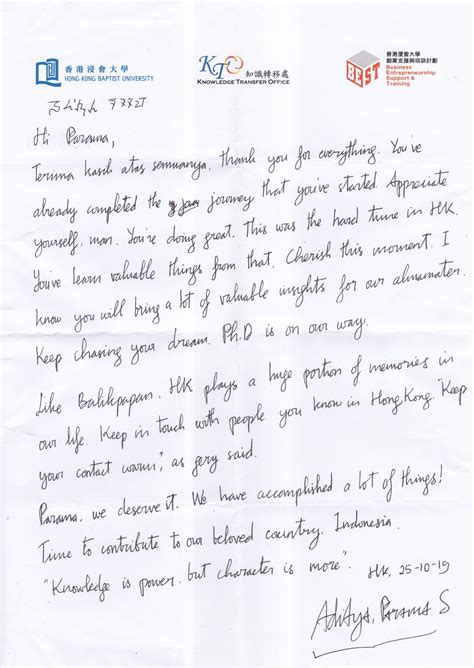 香港浸會大學
HONG KONG BAPTIST UNIVERSITY
KTO 知識轉移處
KNOWLEDGE TRANSFER OFFICE
BEST
香港浸會大學
創業支援與培訓計劃
Business
Entrepreneurship
Support &
Training
Hi Parama,
Terima kasih atas semuanya, thank you for everything. You've
already completed the journey that you've started. Appreciate
yourself, man. You're doing great. This was the hard time in HK.
You've learn valuable things from that. Cherish this moment. I
know you will bring a lot of valuable insights for our almamater.
Keep chasing your dream. Ph.D is on our way.
Like Balikpapan, HK plays a huge portion of memories in
our life. Keep in touch with people you know in Hong Kong. "Keep
your contact warm", as gery said.
Parama, we deserve it. We have accomplished a lot of things!
Time to contribute to our beloved country, Indonesia.
"Knowledge is power, but character is more".
HK, 25-10-19
Aditya, Parama S